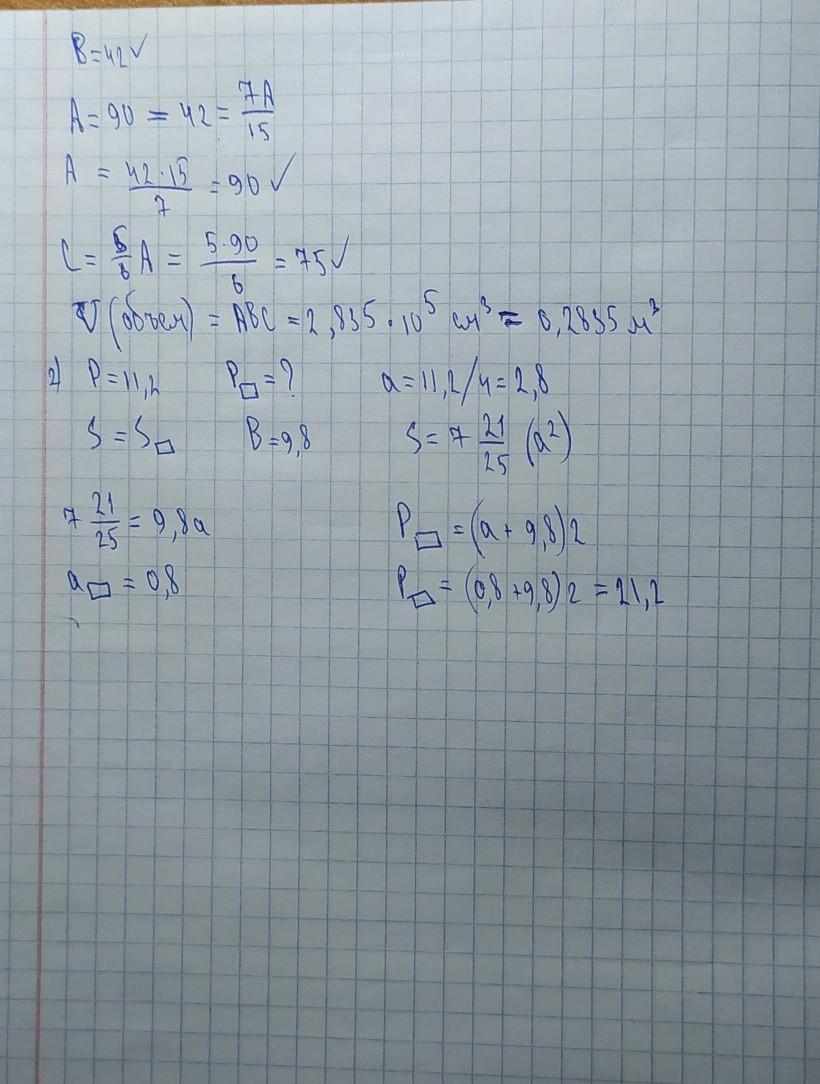 B=42✓
A=90 = 42 = 7A/15
A = 42·15/7 = 90 ✓
C = 5/6 A = 5·90/6 = 75✓
V (объем) = ABC = 2,835·10⁵ см³ = 0,2835 м³
2) P=11,2 P▭=? a=11,2/4=2,8
S=S▭ B=9,8 S=7 21/25 (a²)
7 21/25 = 9,8a P▭=(a+9,8)2
a▭=0,8 P▭=(0,8+9,8)2=21,2